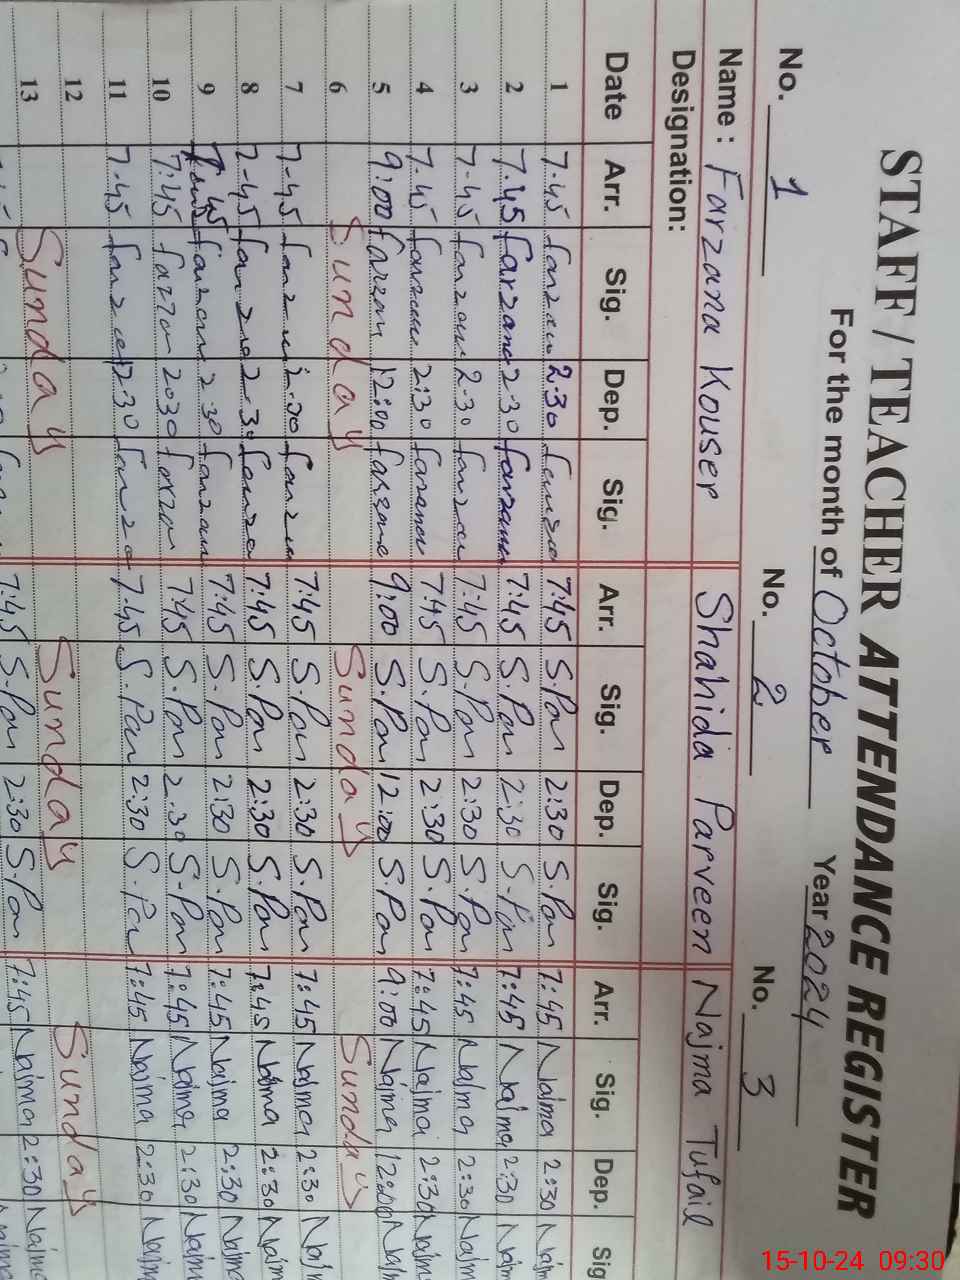 STAFF / TEACHER ATTENDANCE REGISTER
For the month of October Year 2024
No. 1 No. 2 No. 3
Name : Farzana Kouser Shahida Parveen Najma Tufail
Designation:
Date Arr. Sig. Dep. Sig. Arr. Sig. Dep. Sig. Arr. Sig. Dep. Sig
1 7.45 2.30 7:45 S.Par 2:30 S.Par 7:45 Najma 2:30
2 7.45 farzana 2-30 farzana 7:45 S.Par 2:30 S.Par 7:45 Najma 2:30
3 7-45 2-30 7:45 S.Par 2:30 S.Par 7:45 Najma 2:30
4 7-45 2:30 7:45 S.Par 2:30 S.Par 7:45 Najma 2:30
5 9:00 12:00 9:00 S.Par 12:00 S.Par 9:00 Najma 12:00
6 Sunday Sunday Sunday
7 7-45 7:45 S.Par 2:30 S.Par 7:45 Najma 2:30
8 7-45 2-30 7:45 S.Par 2:30 S.Par 7:45 Najma 2:30
9 7.45 2-30 7:45 S.Par 2:30 S.Par 7:45 Najma 2:30
10 7:45 2030 7:45 S.Par 2:30 S.Par 7:45 Najma 2:30
11 7-45 2-30 7.45 S.Par 2:30 S.Par 7:45 Najma 2:30
12
Sunday Sunday Sunday
13 7:45 S.Par 2:30 S.Par 7:45 Najma 2:30 Najma
15-10-24 09:30